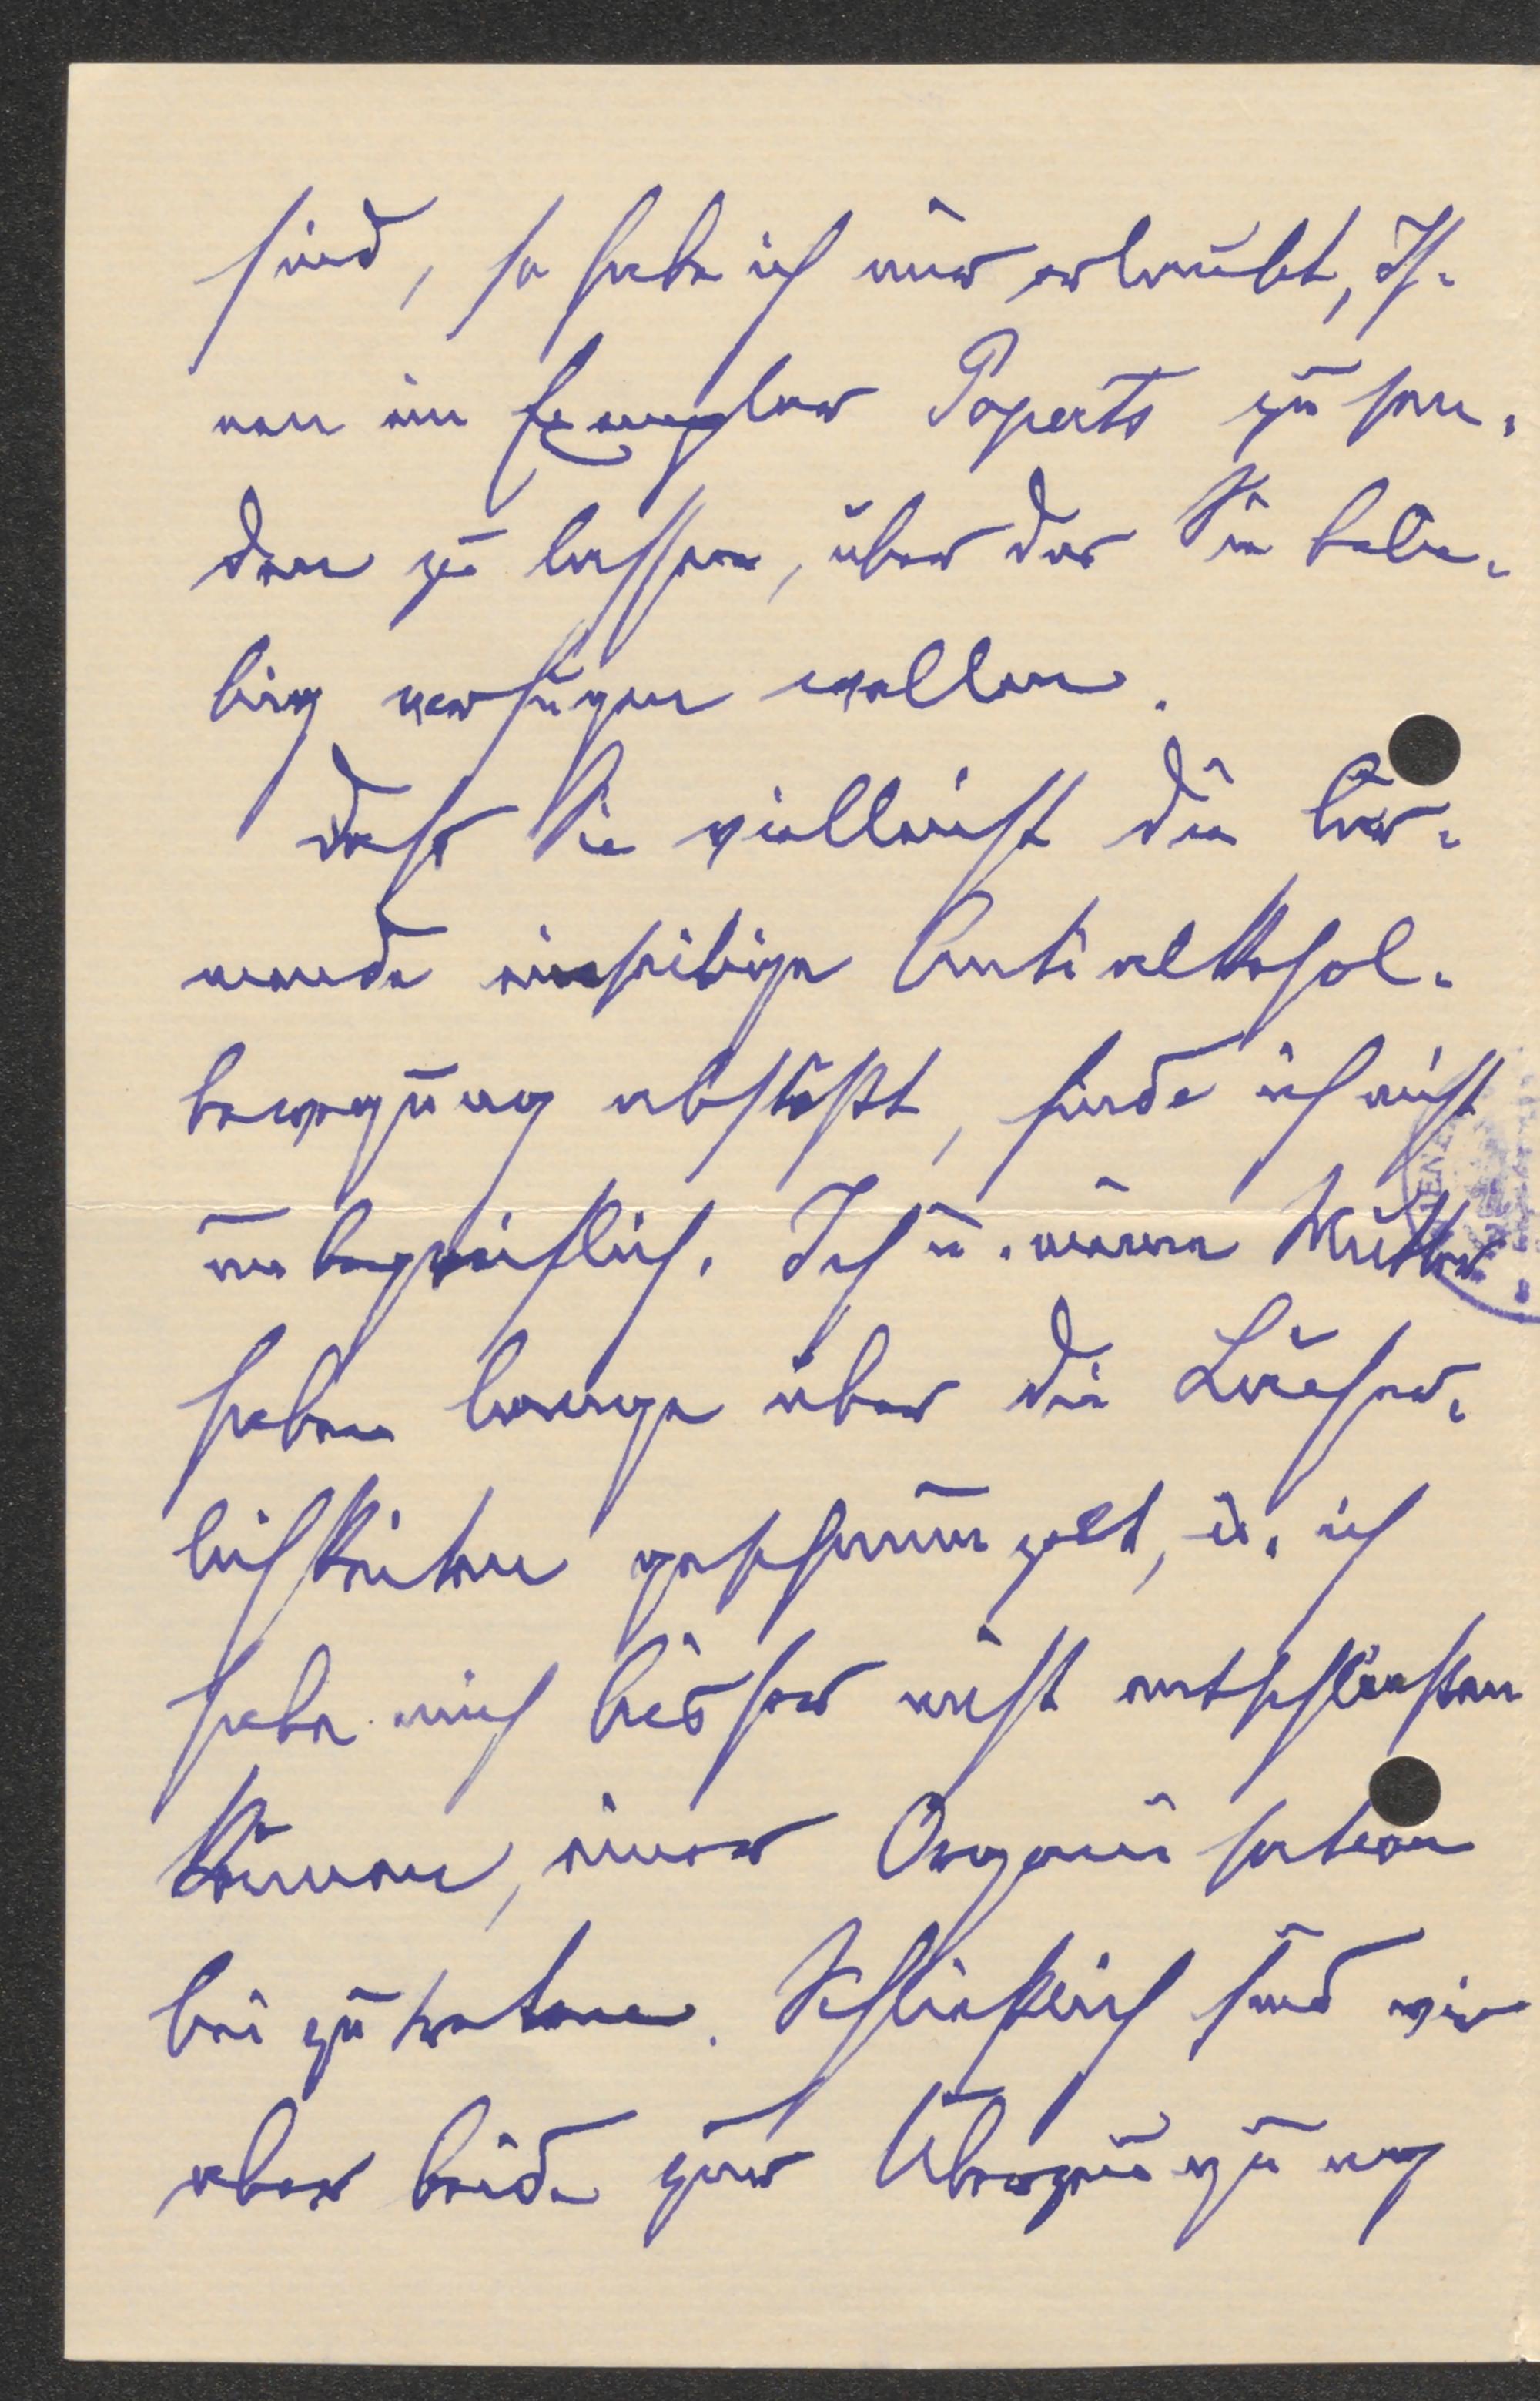 sind, so habe ich mir erlaubt, Ih-
nen ein Exemplar Poperts zu sen-
den zu lassen, über das Sie belie-
big verfügen wollen.
Daß Sie vielleicht die lär-
mende einseitige Antialkohol-
bewegung abstößt, finde ich nicht
unbegreiflich. Ich u. meine Mutter
haben lange über die Lächer-
lichkeiten geschmunzelt, u. ich
habe mich bisher nicht entschließen
können, einer Organisation
beizutreten. Schließlich sind wir
aber beide zur Überzeugung